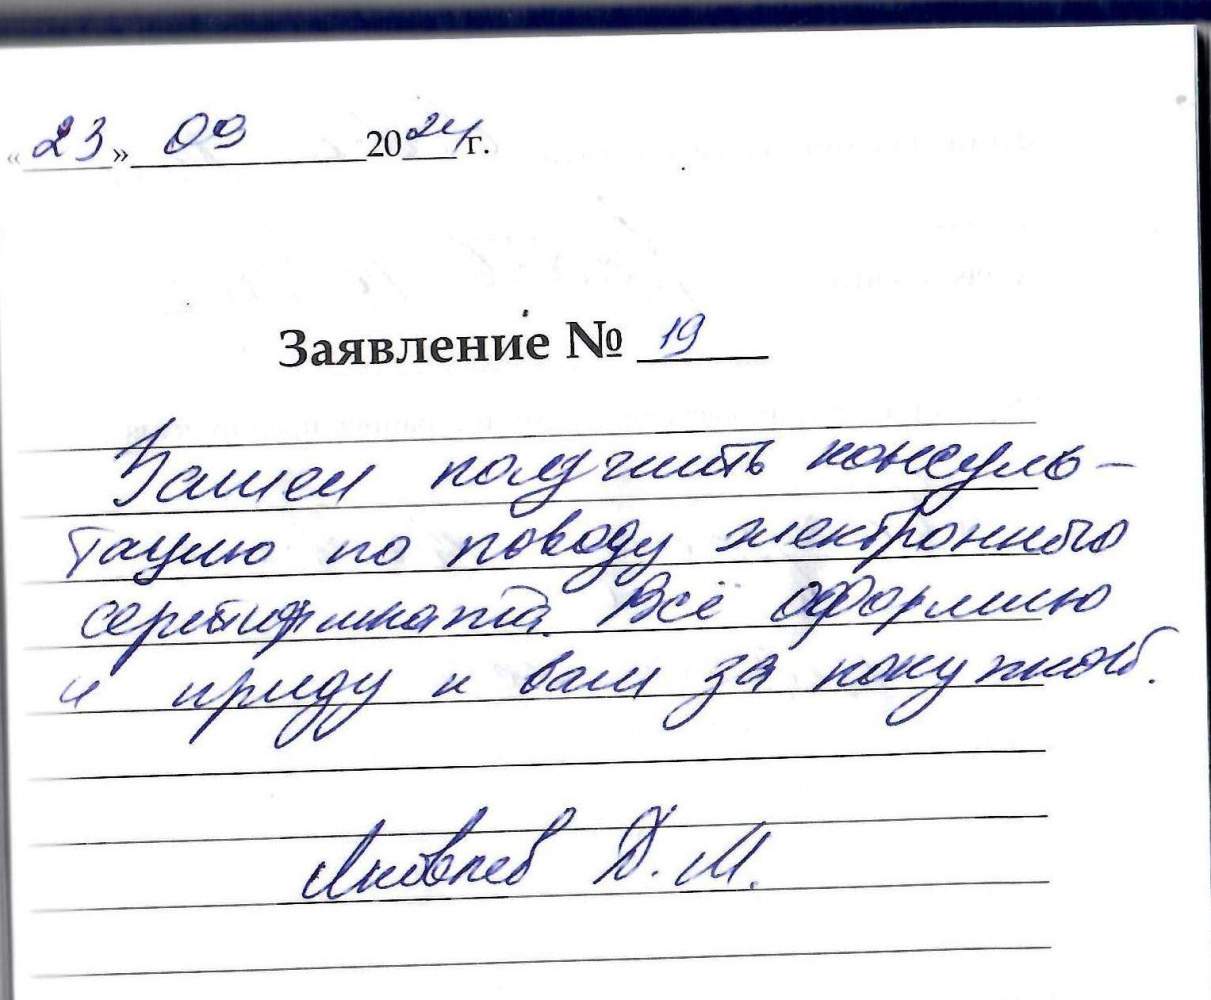 «23» 09 2024 г.
Заявление № 19
Зашел получить консуль-
тацию по поводу электронного
сертификата. Всё оформлю
и приду к вам за покупкой.
Яковлев Д. М.